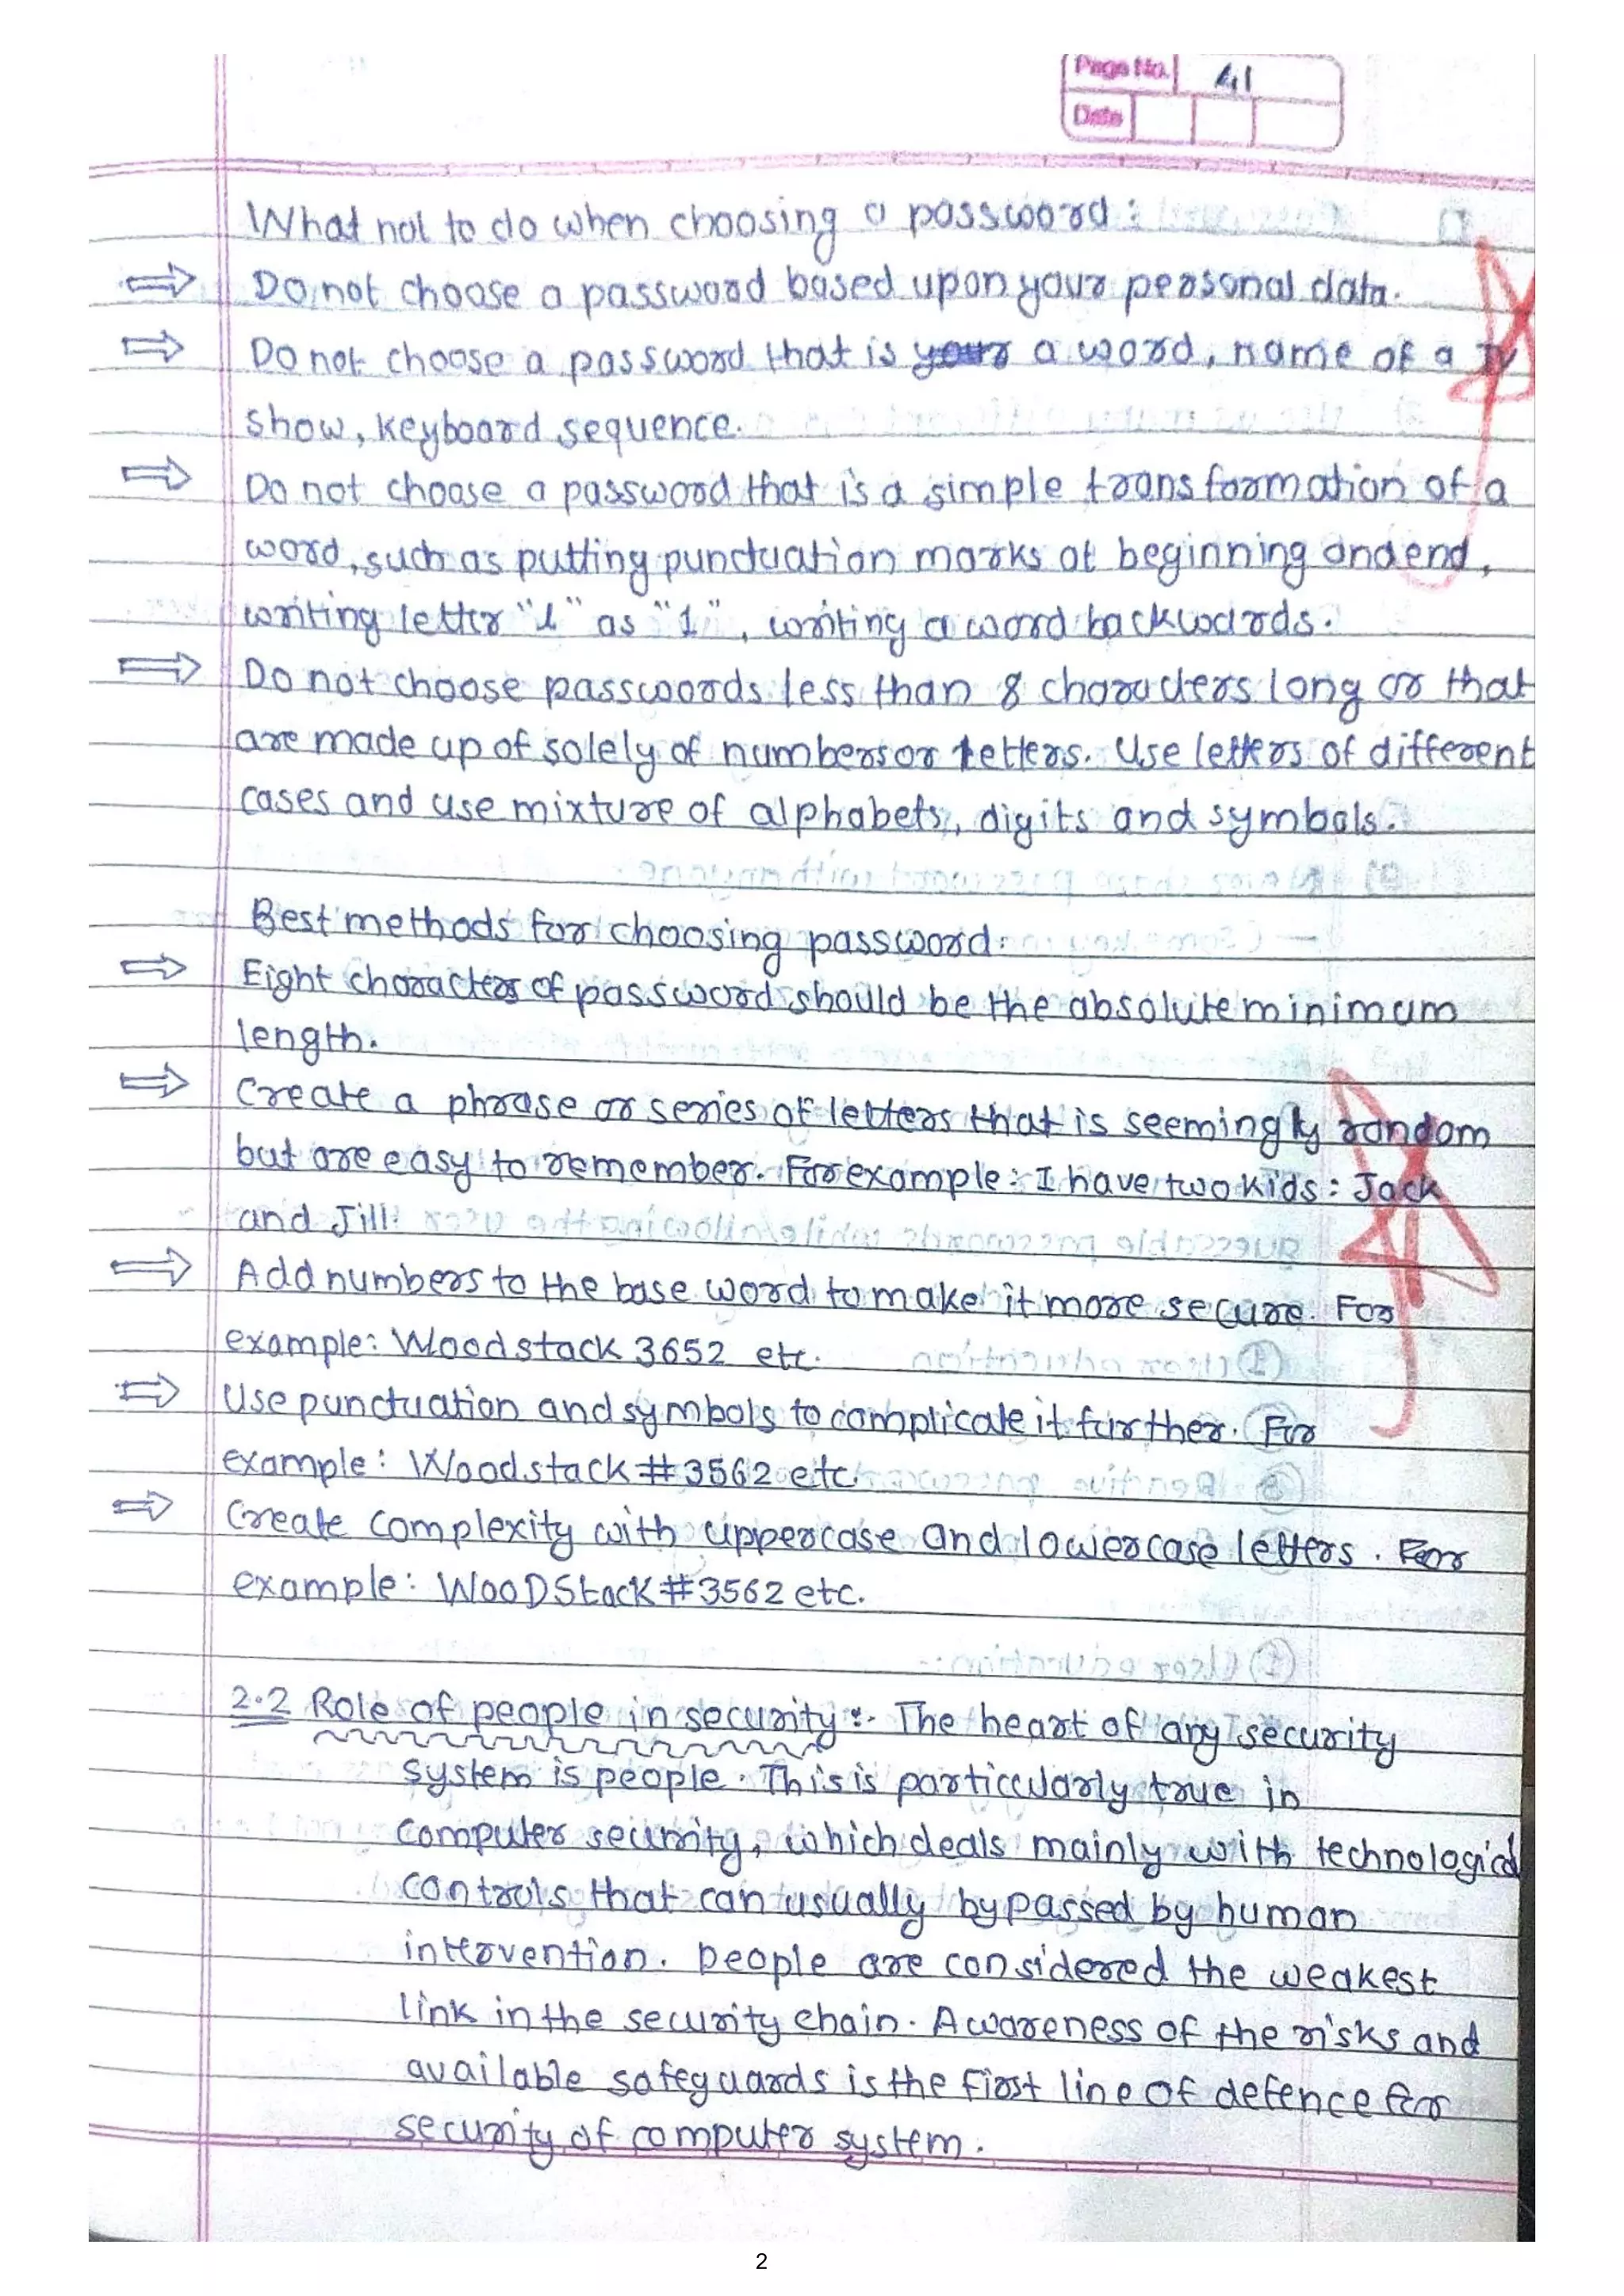 Page No. 41
Date
What not to do when choosing a password:
⇒ Do not choose a password based upon your personal data.
⇒ Do not choose a password that is a word, name of a TV
show, keyboard sequence.
⇒ Do not choose a password that is a simple transformation of a
word, such as putting punctuation marks at beginning and end,
writing letter "l" as "1", writing a word backwards.
⇒ Do not choose passwords less than 8 characters long or that
are made up of solely of numbers or letters. Use letters of different
cases and use mixture of alphabets, digits and symbols.
Best methods for choosing password:
⇒ Eight character of password should be the absolute minimum
length.
⇒ Create a phrase or series of letters that is seemingly random
but are easy to remember. For example: I have two kids: Jack
and Jill.
⇒ Add numbers to the base word to make it more secure. For
example: Woodstack 3652 etc.
⇒ Use punctuation and symbols to complicate it further. For
example: Woodstack#3562 etc.
⇒ Create complexity with uppercase and lowercase letters. For
example: WooDStacK#3562 etc.
2.2 Role of people in security:- The heart of any security
system is people. This is particularly true in
computer security, which deals mainly with technological
controls that can usually bypassed by human
intervention. people are considered the weakest
link in the security chain. Awareness of the risks and
available safeguards is the first line of defence for
security of computer system.
2